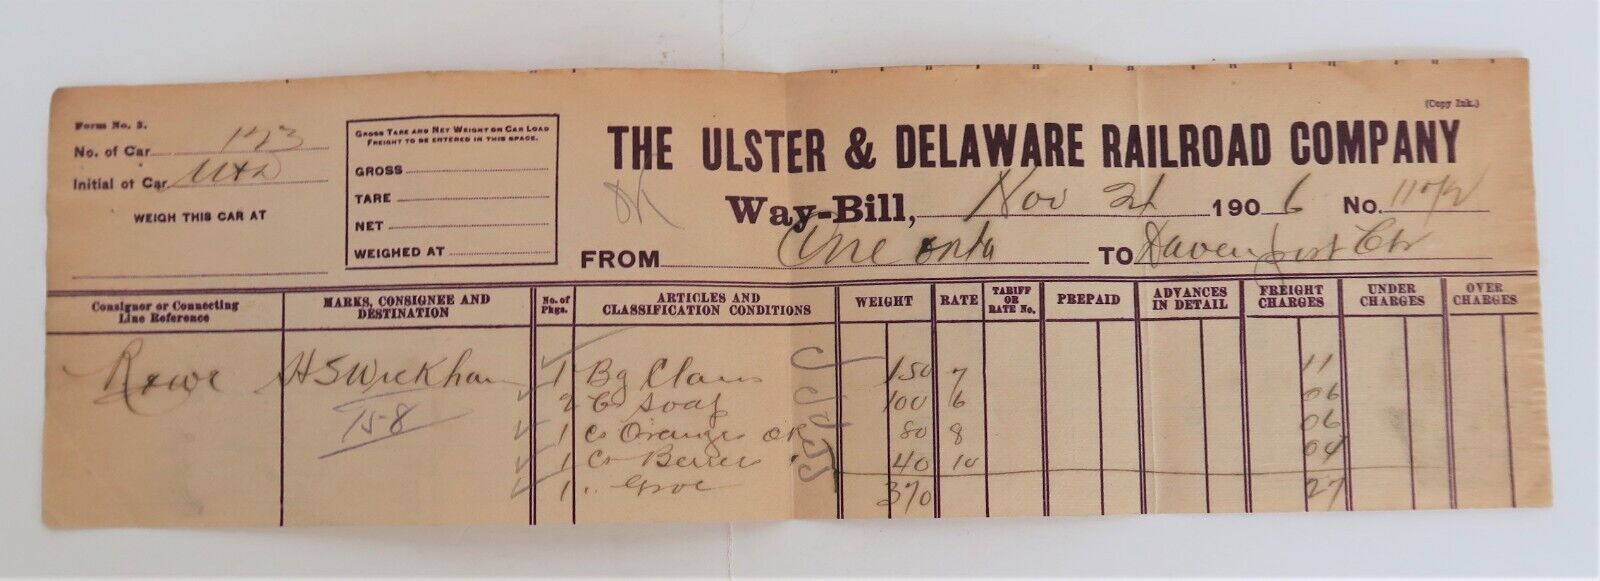 (Copy Ink.)
Form No. 3.
No. of Car 173
Initial of Car U&D
WEIGH THIS CAR AT
GROSS TARE AND NET WEIGHT ON CAR LOAD
FREIGHT TO BE ENTERED IN THIS SPACE.
GROSS
TARE
NET
WEIGHED AT
THE ULSTER & DELAWARE RAILROAD COMPANY
OK
Way-Bill, Nov 21 1906 No.
FROM Oneonta TO Davenport Ctr
Consignor or Connecting Line Reference MARKS, CONSIGNEE AND DESTINATION No. of Pkgs. ARTICLES AND CLASSIFICATION CONDITIONS WEIGHT RATE TARIFF OR RATE No. PREPAID ADVANCES IN DETAIL FREIGHT CHARGES UNDER CHARGES OVER CHARGES
Rowe H S Wickham 1 Bg Clams 150 7 11
158 2 Cs Soap 100 6 06
1 Cs Oranges OR 80 8 06
1 Cs 40 10 04
1 " Groc 370 27